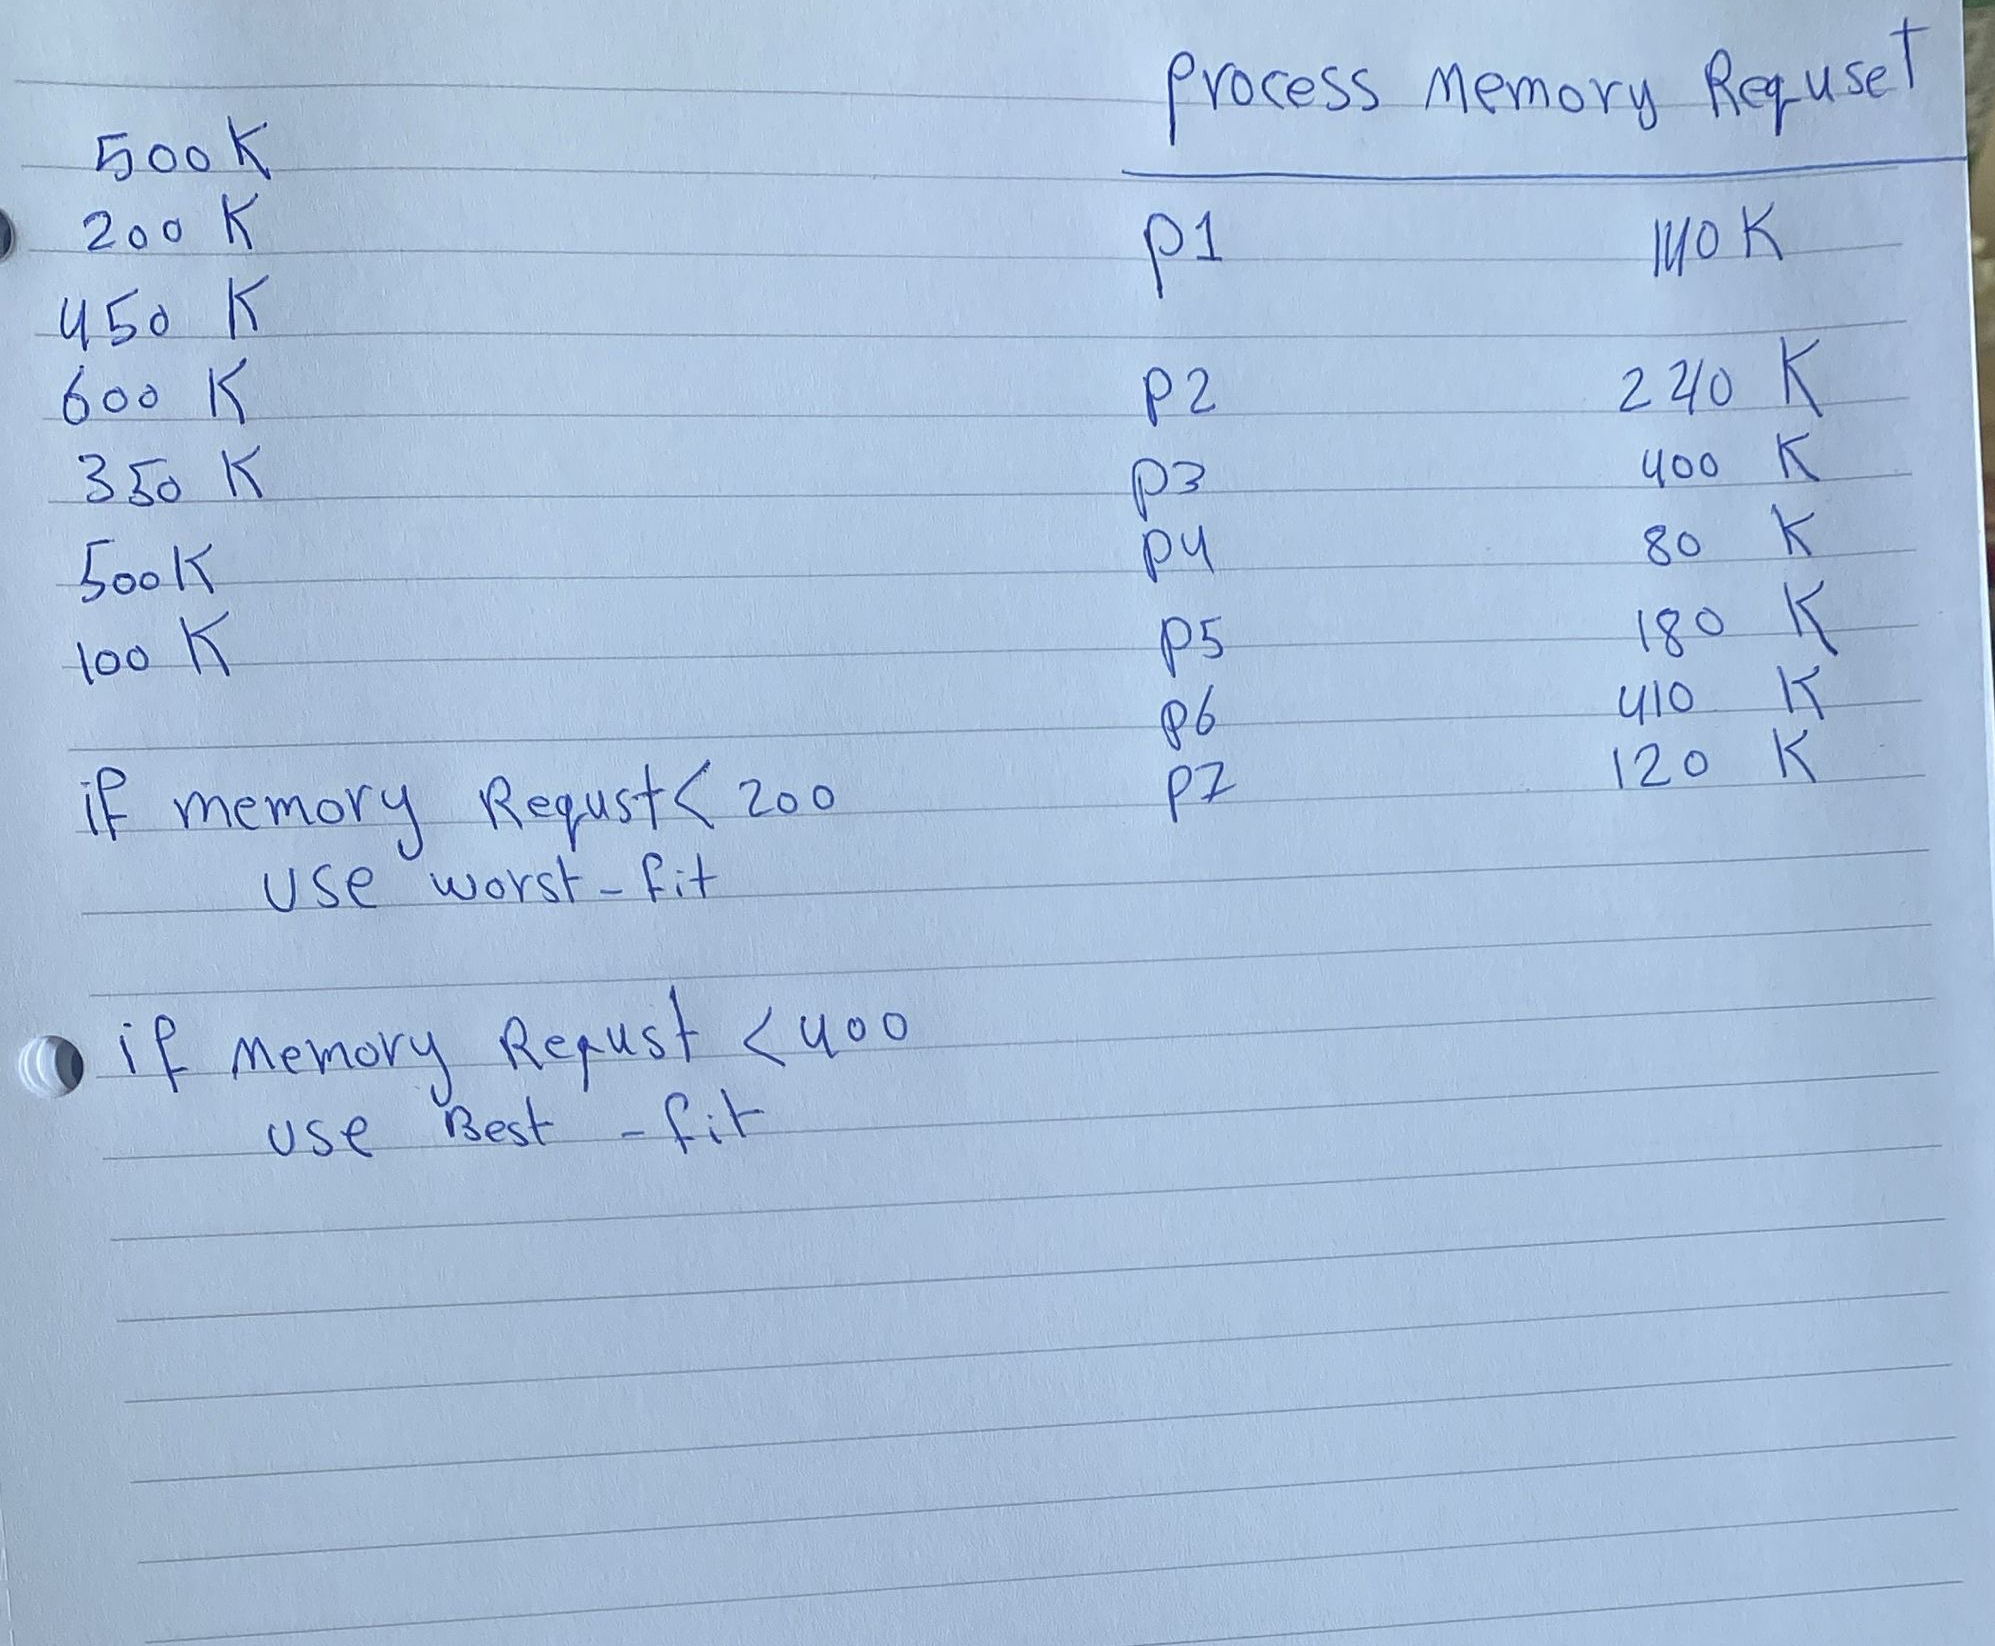 process Memory Requset
500 K
200 K
450 K
600 K
350 K
500 K
100 K
P1 140 K
P2 240 K
P3 400 K
P4 80 K
P5 180 K
P6 410 K
P7 120 K
if memory Requst < 200
use worst-fit
if Memory Requst < 400
use Best -fit